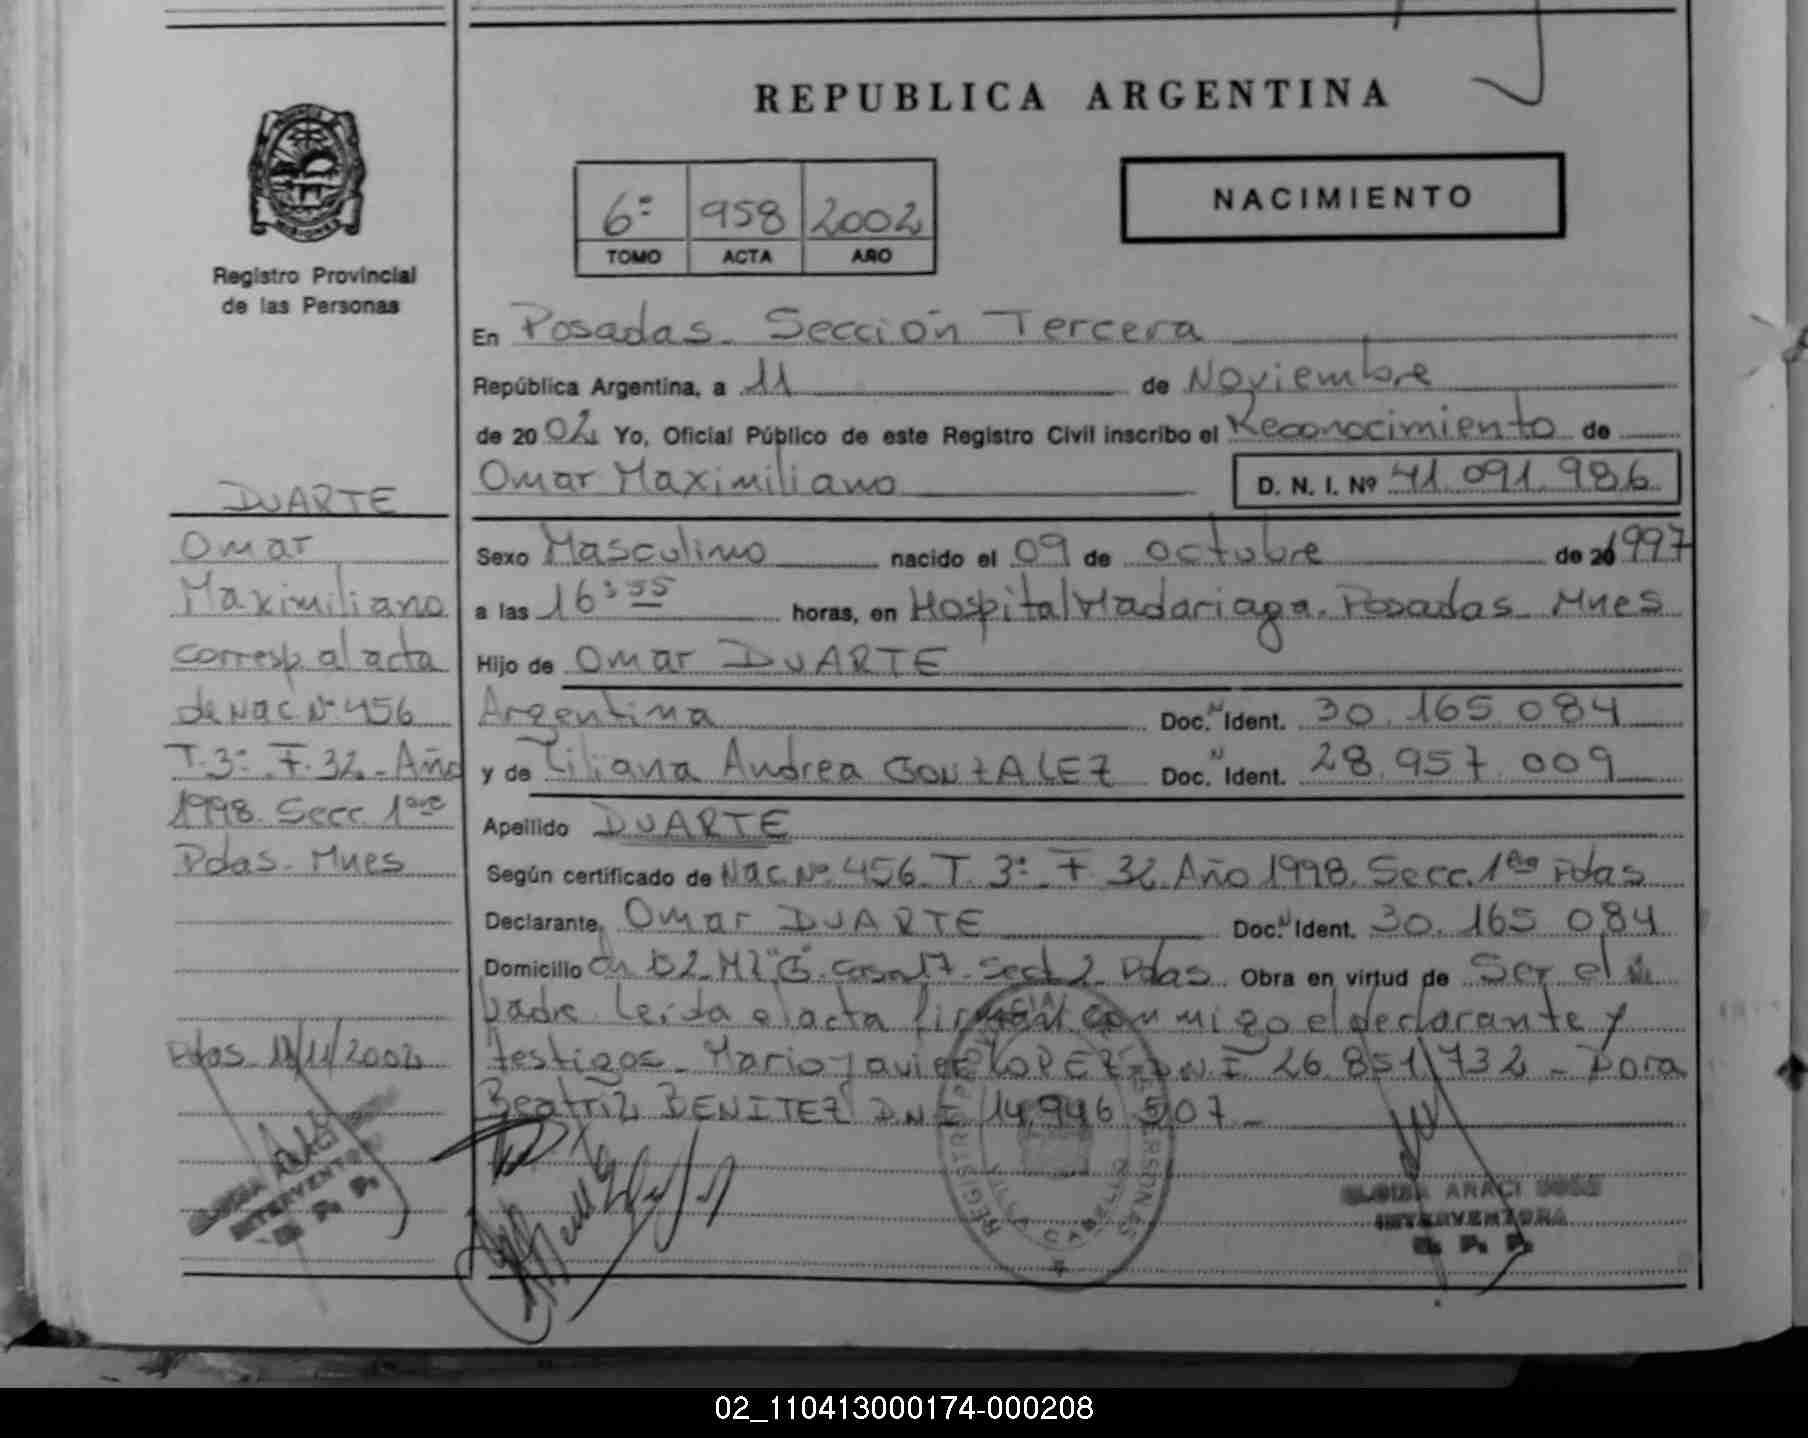 REPUBLICA ARGENTINA
6º 958 2002
TOMO ACTA AÑO
NACIMIENTO
Registro Provincial
de las Personas
En Posadas. Sección Tercera
República Argentina, a 11 de Noviembre
de 2002 Yo, Oficial Público de este Registro Civil inscribo el Reconocimiento de
Omar Maximiliano D. N. I. Nº 41.091.986
DUARTE
Omar
Maximiliano
corresp. al acta
de Nac Nº 456
T. 3º F. 32 - Año
1998. Secc. 1era
Pdas. Mnes
Pdas 11/11/2002
Sexo Masculino nacido el 09 de octubre de 1997
a las 16:55 horas, en Hospital Madariaga. Posadas. Mnes
Hijo de Omar DUARTE
Argentina Doc. N Ident. 30.165.084
y de Liliana Andrea GONZALEZ Doc. N Ident. 28.957.009
Apellido DUARTE
Según certificado de Nac. Nº 456 T. 3º F 32 Año 1998. Secc. 1era Pdas
Declarante, Omar DUARTE Doc. N Ident. 30.165.084
Domicilio Ch 152 Mz "G" casa 17 Sect 2 Pdas. Obra en virtud de Ser el
padre. Leída el acta firman conmigo el declarante y
testigos. Mario Javier LOPEZ DNI 26.851.732 - Dora
Beatriz BENITEZ DNI 14.946.507
ARACI
INTERVENTORA
R. P. P.
INTERVENTORA
R. P. P.
02_110413000174-000208